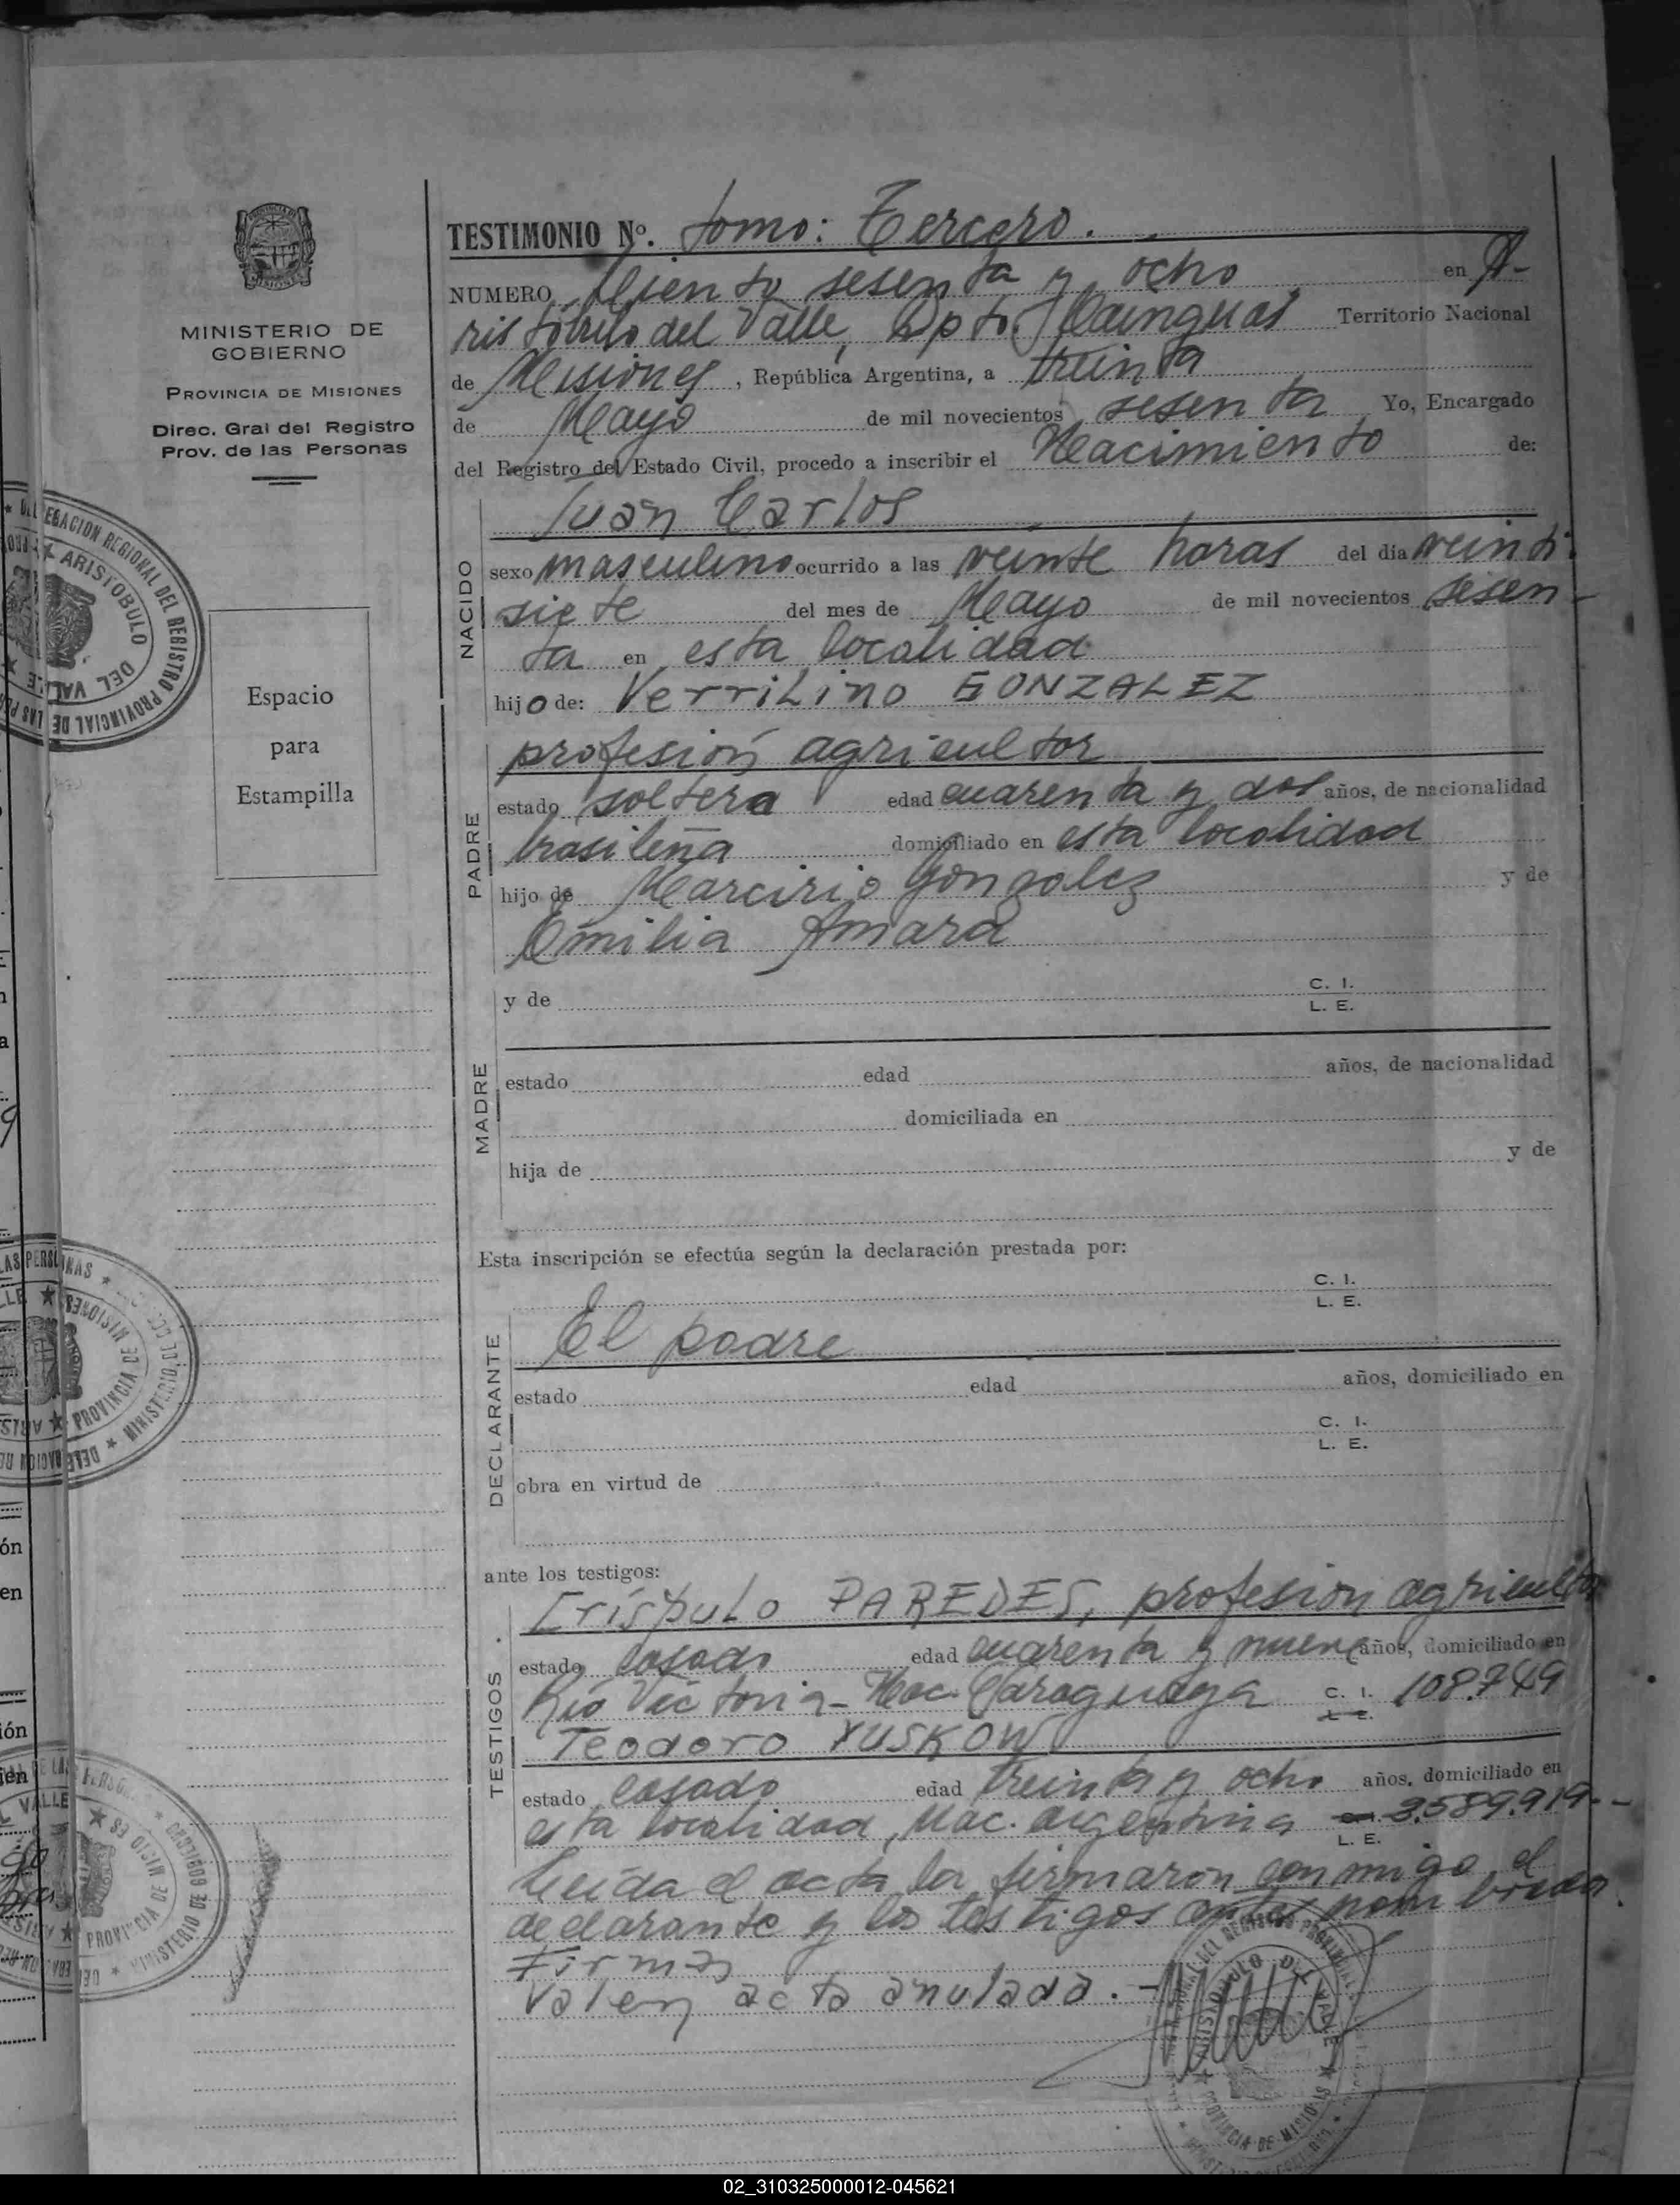 TESTIMONIO Nº. tomo: Tercero.
NUMERO Ciento sesenta y ocho en A-
ristóbulo del Valle, Dpto. Cainguas Territorio Nacional
de Misiones, República Argentina, a treinta
de Mayo de mil novecientos sesenta Yo, Encargado
del Registro del Estado Civil, procedo a inscribir el Nacimiento de:
MINISTERIO DE
GOBIERNO
PROVINCIA DE MISIONES
Direc. Gral del Registro
Prov. de las Personas
Espacio
para
Estampilla
NACIDO
Juan Carlos
sexo masculino ocurrido a las veinte horas del dia veinti-
siete del mes de Mayo de mil novecientos sesen-
ta en esta localidad
hijo de: Verrilino GONZALEZ
PADRE
profesión agricultor
estado soltero edad cuarenta y dos años, de nacionalidad
brasileña domiciliado en esta localidad
hijo de Marcirio Gonzalez y de
Emilia Amara
MADRE
y de C. I.
L. E.
estado edad años, de nacionalidad
domiciliada en
hija de y de
Esta inscripción se efectúa según la declaración prestada por:
C. I.
L. E.
DECLARANTE
El padre
estado edad años, domiciliado en
C. I.
L. E.
obra en virtud de
ante los testigos:
TESTIGOS
Críspulo PAREDES, profesion agricultor
estado casado edad cuarenta y nueve años, domiciliado en
Río Victoria - Nac. Paraguaya C. I. 108.749
L. E.
Teodoro YUSKOW
estado casado edad treinta y ocho años, domiciliado en
esta localidad, Nac. argentina C.I. 3.589.919.-
L. E.
Leída el acta la firmaron conmigo el
declarante y los testigos antes nombrados.
Firmas
Valen acta anulada. -
DELEGACION REGIONAL DEL REGISTRO PROVINCIAL DE LAS
ARISTOBULO DEL VALLE
PROVINCIA DE MISIONES
MINISTERIO DE GOBIERNO
02_310325000012-045621